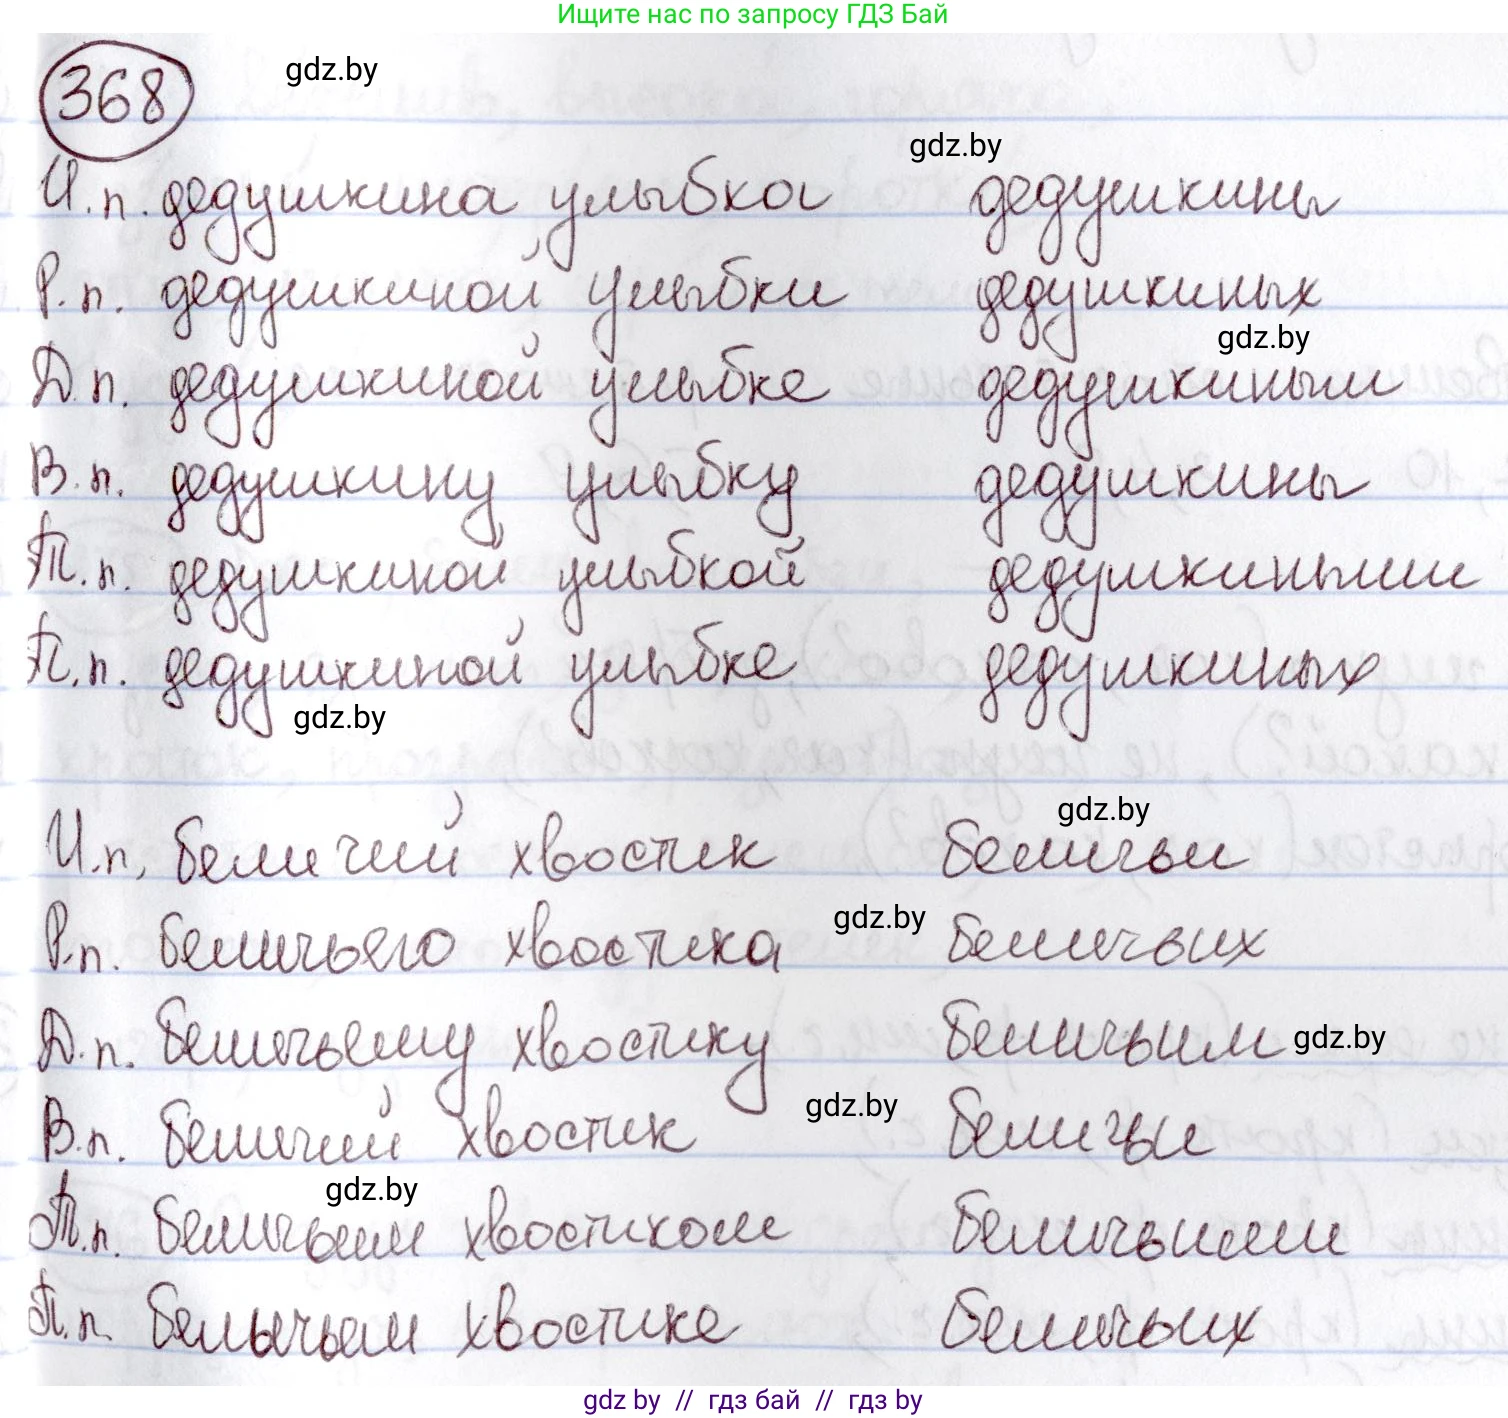 Ищите нас по запросу ГДЗ Бай
368 gdz.by
gdz.by
И.п. дедушкина улыбка дедушкины
Р.п. дедушкиной улыбки дедушкиных
gdz.by
Д.п. дедушкиной улыбке дедушкиным
В.п. дедушкину улыбку дедушкины
Т.п. дедушкиной улыбкой дедушкиными
П.п. дедушкиной улыбке дедушкиных
gdz.by
gdz.by
И.п. беличий хвостик беличьи
Р.п. беличьего хвостика gdz.by беличьих
Д.п. беличьему хвостику беличьим gdz.by
gdz.by
В.п. беличий хвостик беличьи
gdz.by
Т.п. беличьим хвостиком беличьими
П.п. беличьем хвостике беличьих
gdz by // гдз бай // гдз by